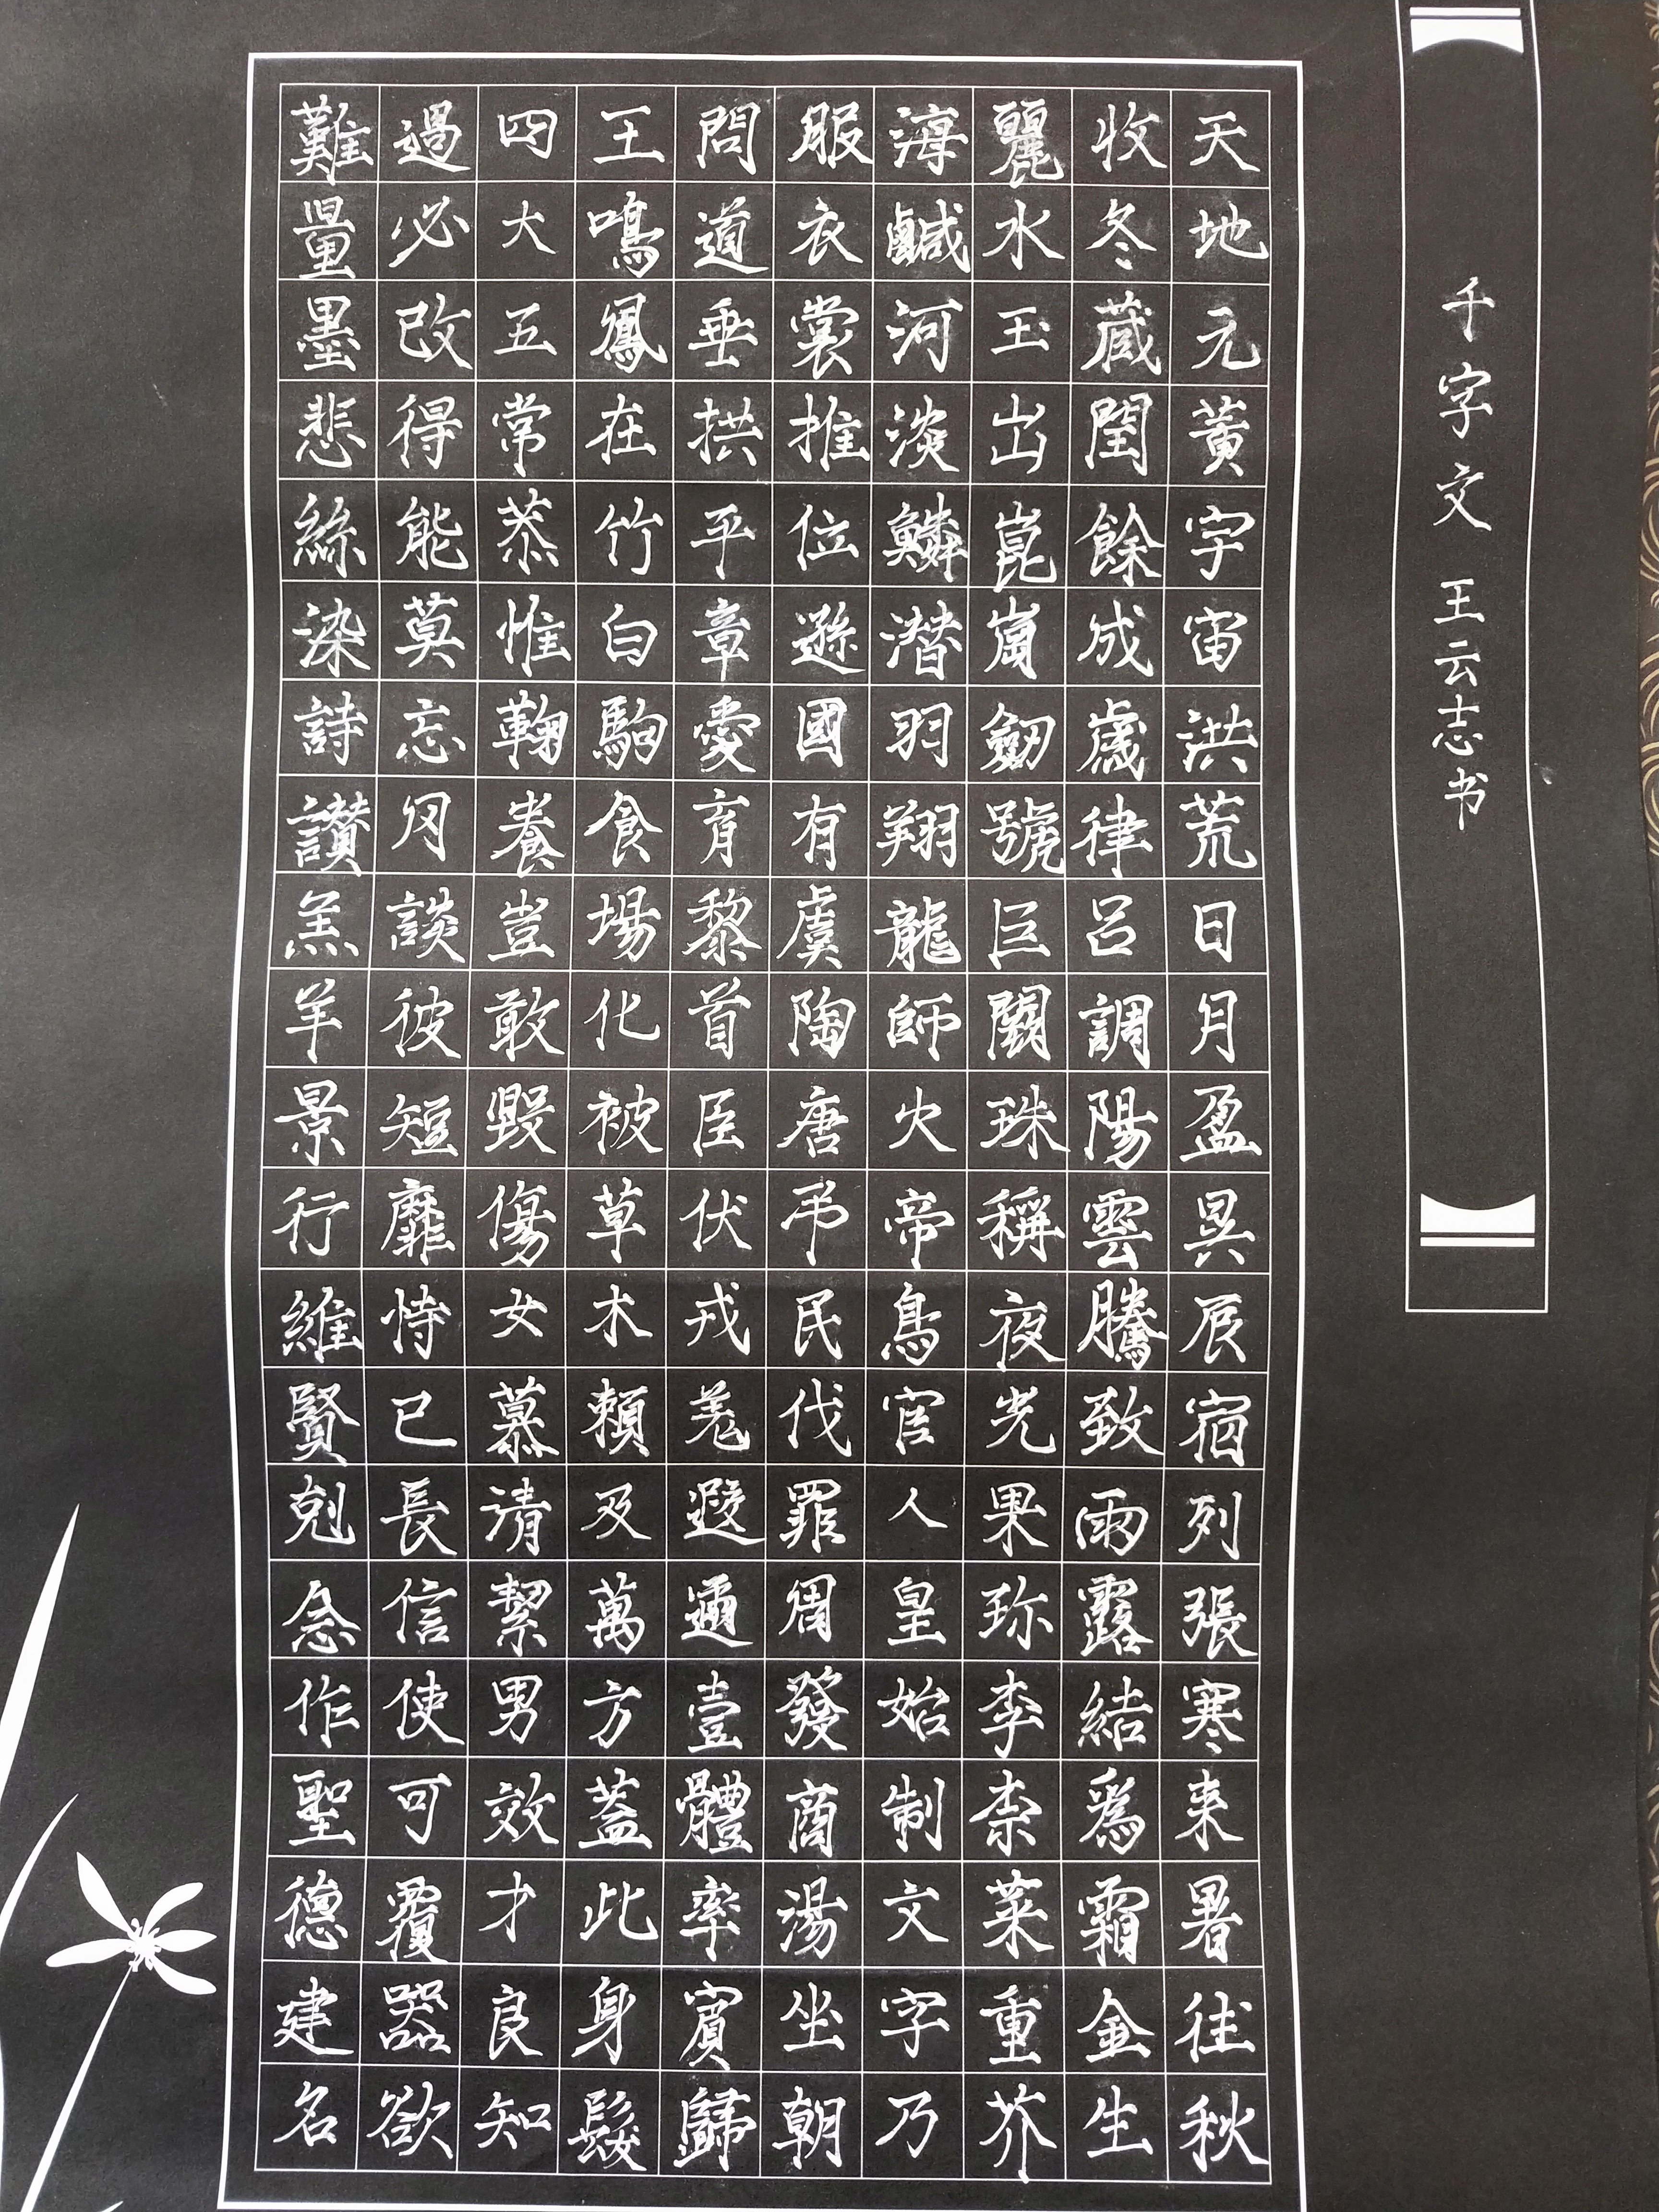 千字文 王云志书
天地元黃宇宙洪荒日月盈昃辰宿列張寒来暑往秋
收冬蔵閏餘成歲律呂調陽雲騰致雨露結爲霜金生
麗水玉出崑崗劒號巨闕珠稱夜光果珎李柰菜重芥
海鹹河淡鱗潜羽翔龍師火帝鳥官人皇始制文字乃
服衣裳推位遜國有虞陶唐弔民伐罪周發商湯坐朝
問道垂拱平章愛育黎首臣伏戎羌遐邇壹體率賓歸
王鳴鳳在竹白駒食場化被草木頼及萬方蓋此身髮
四大五常恭惟鞠養豈敢毀傷女慕清絜男效才良知
過必改得能莫忘罔談彼短靡恃己長信使可覆器欲
難量墨悲絲染詩讃羔羊景行維賢剋念作聖德建名